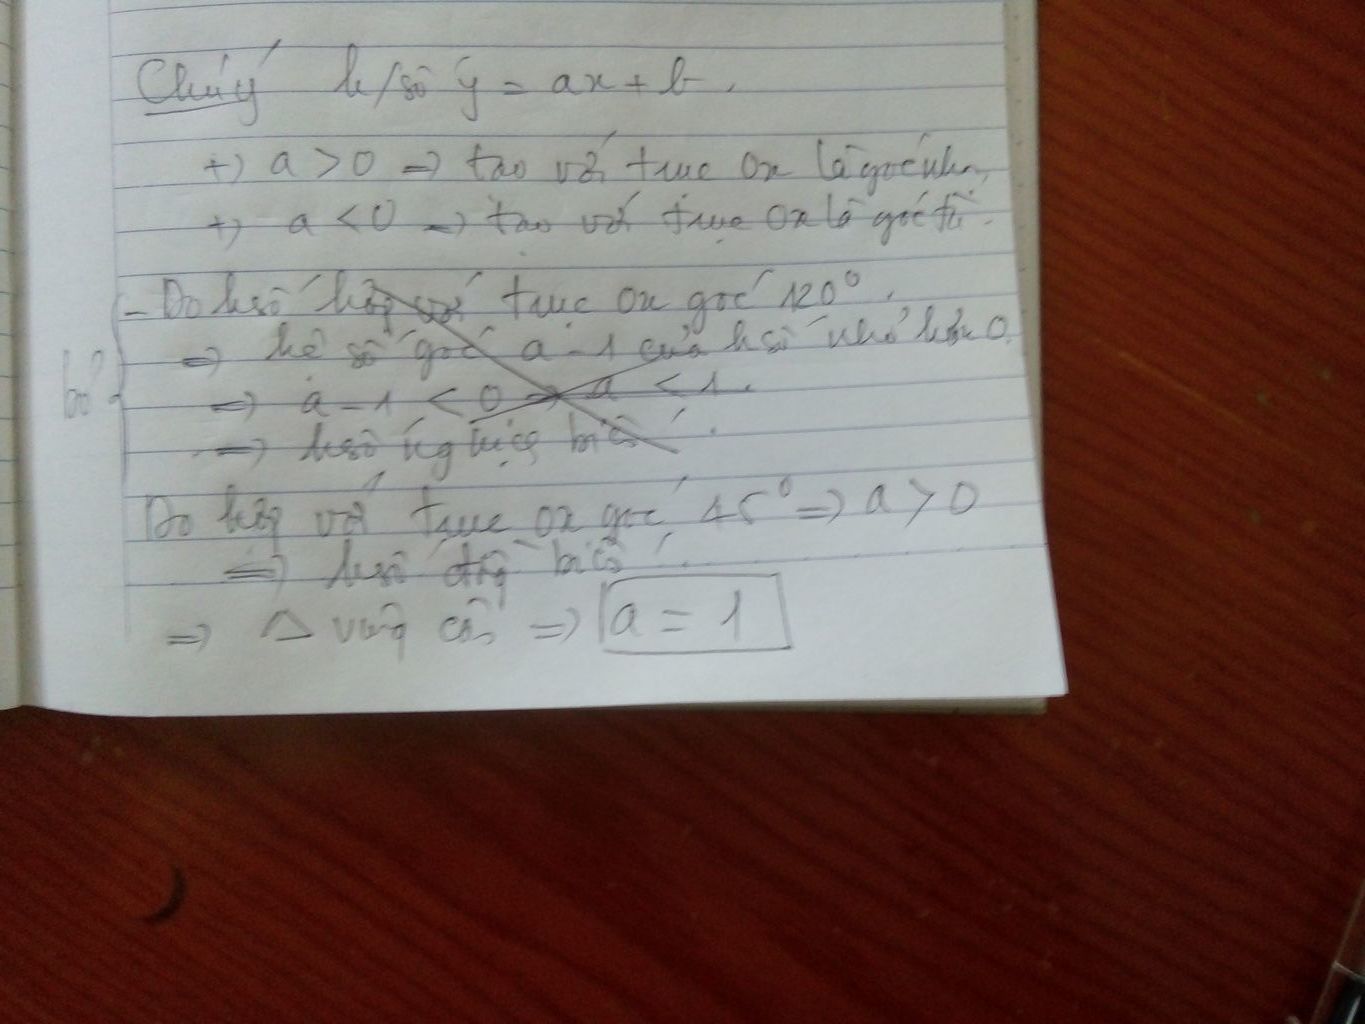 Chú ý h/số y = ax + b.
+) a > 0 => tạo với trục Ox là góc nhọn,
+) a < 0 => tạo với trục Ox là góc tù.
- Do hsố hợp với trục Ox góc 120°.
=> hệ số góc a - 1 của hsố nhỏ hơn 0.
=> a - 1 < 0 => a < 1.
=> hsố nghịch biến.
bỏ
Do hợp với trục Ox góc 45° => a > 0
=> hsố đồng biến.
=> Δ vuông cân => a = 1